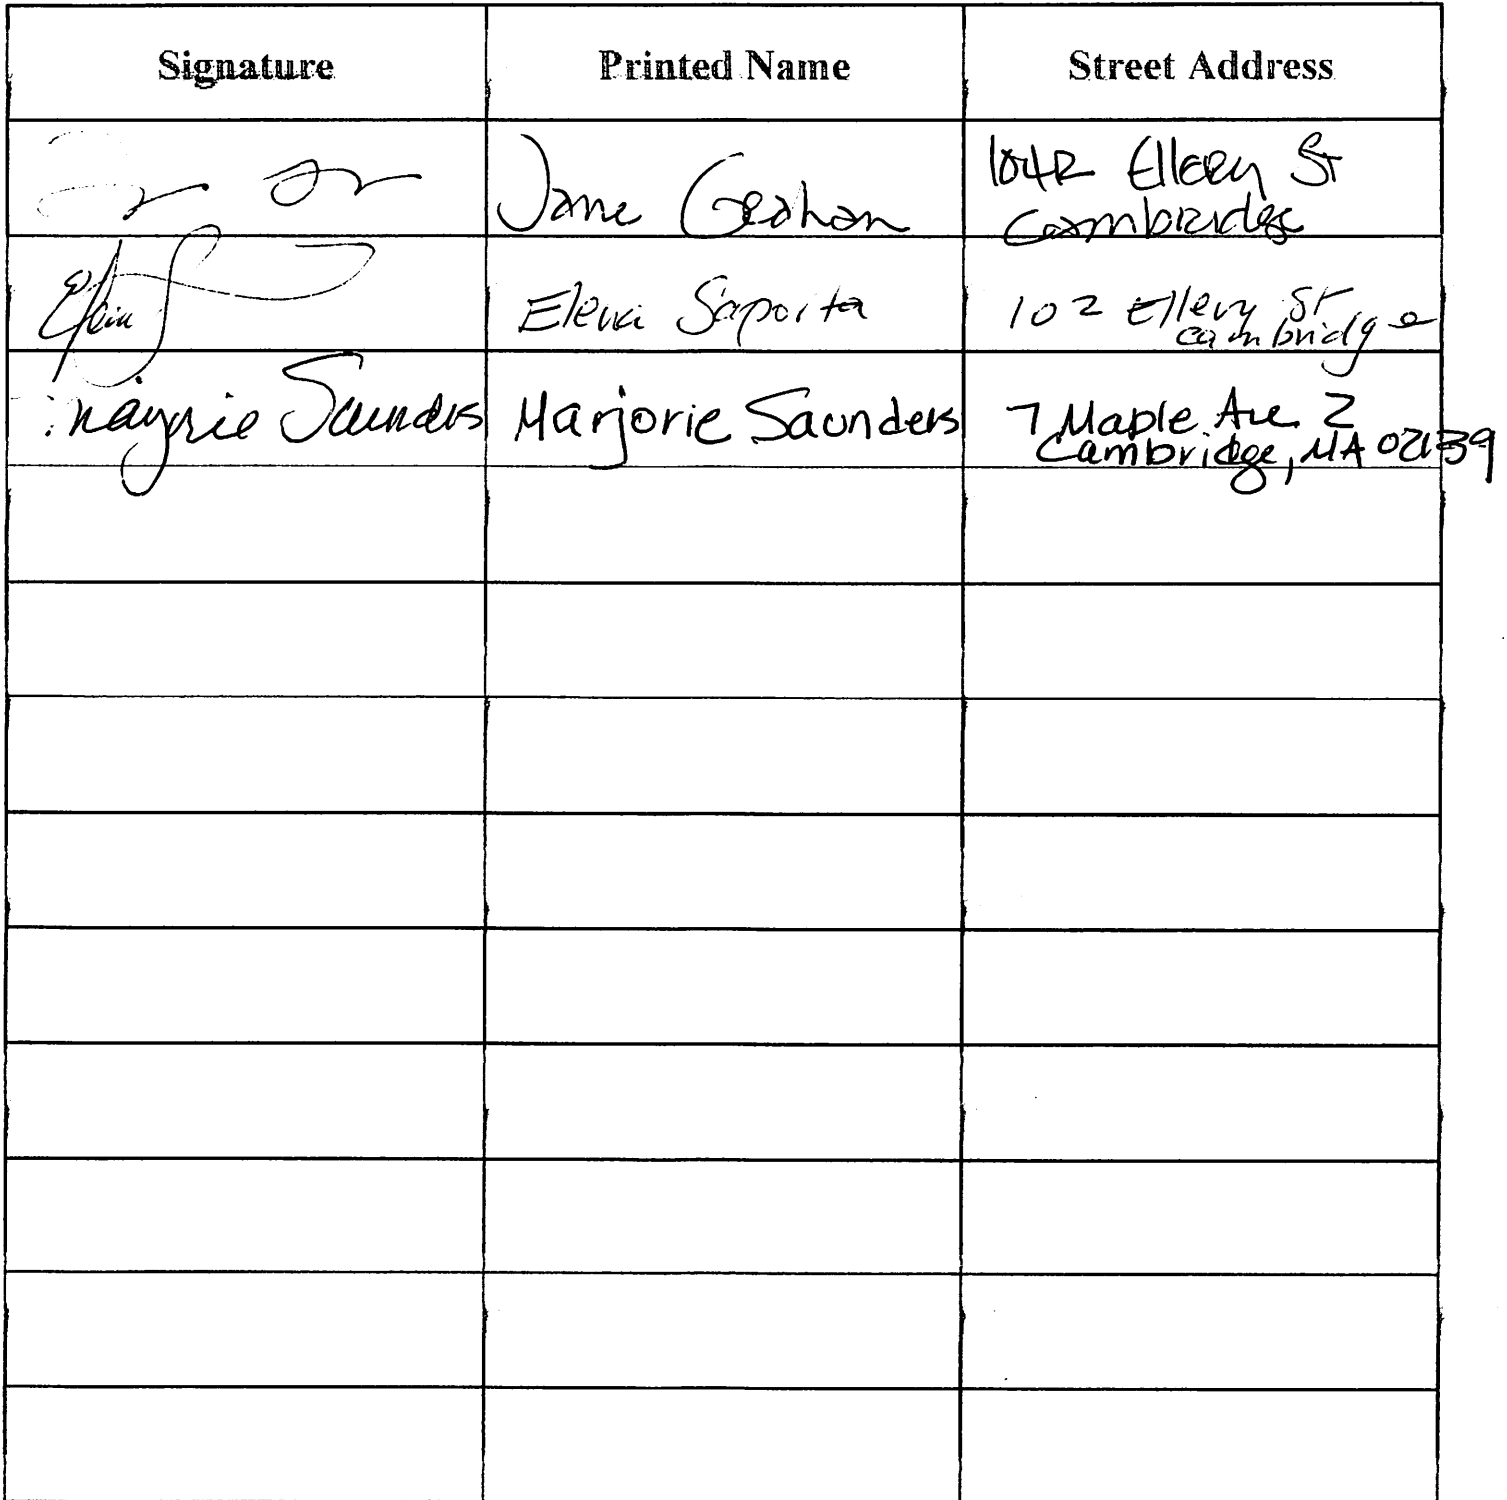 Signature Printed Name Street Address
Jane Geahan 104R Ellery St
Cambridge
Elena Saporta 102 Ellery St
Cambridge
Marjorie Saunders Marjorie Saunders 7 Maple Ave 2
Cambridge, MA 02139